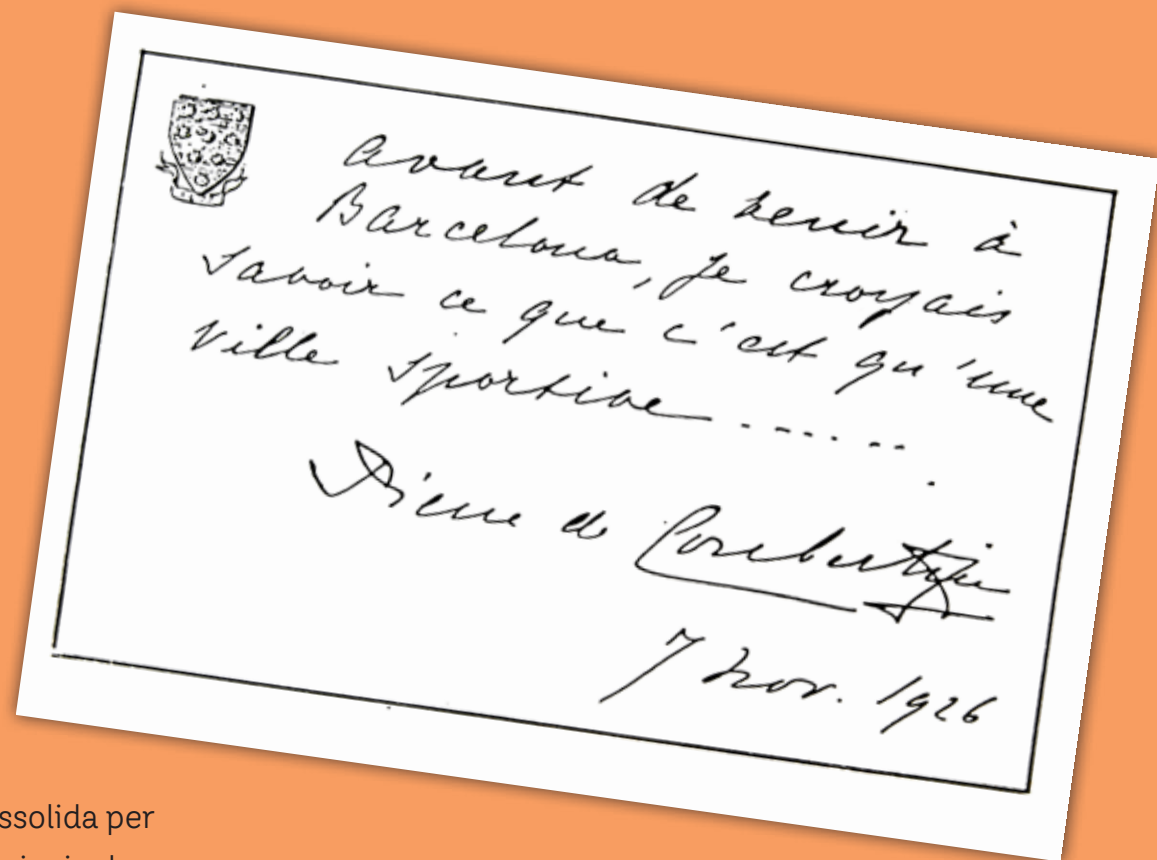 avant de venir à
Barcelona, je croyais
savoir ce que c'est qu'une
ville sportive ........
Pierre de Coubertin
7 nov. 1926
ssolida per